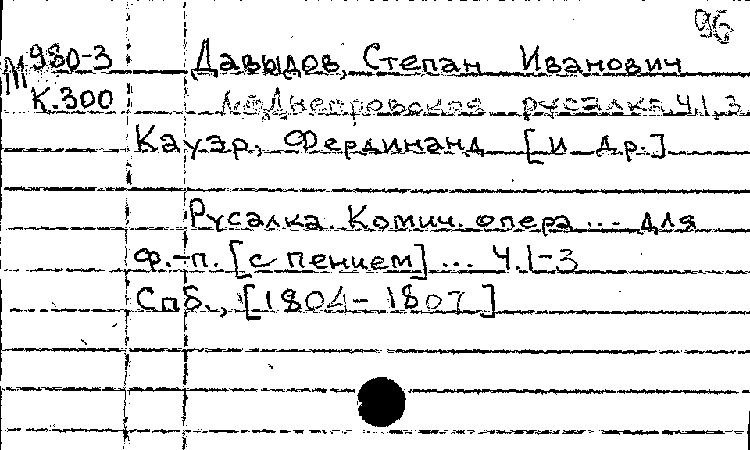 96
М 980-3 Давыдов, Степан Иванович
К.300 Леднепровская русалка. Ч.1, 3
Кауэр, Фердинанд [и др.]
Русалка. Комич. опера ... для
ф.-п. [с пением] ... Ч.1-3
Спб., [1804-1807]